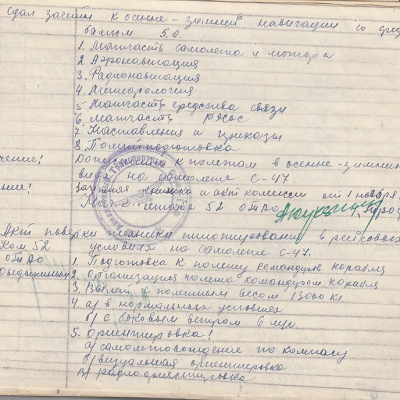 Сдал зачеты к осенне-зимней навигации со сред
баллом 5.0.
1. Матчасть самолета и мотора
2. Аэронавигация
3. Радионавигация
4. Метеорология
5. Матчасть средства связи
6. Матчасть
7. Наставления и приказы
8. Политподготовка
чение! к полетам в осенне-зимних
на самолете С-47.
ние! Зачетная книжка и акт комиссии от 1 ноября
52 отро
Акт проверки техники пилотирования в рейсовых
Ком 52 условиях на самолете С-47.
отро 1. Подготовка к полету командира корабля
2. Организация полета командиром корабля
3. Взлет с полетным весом 13000 кг
4. а) в нормальных условиях
б) с боковым ветром 6 м/с
5. Ориентировка!
а) самолетовождение по компасу
б) визуальная ориентировка
в) радиоориентировка